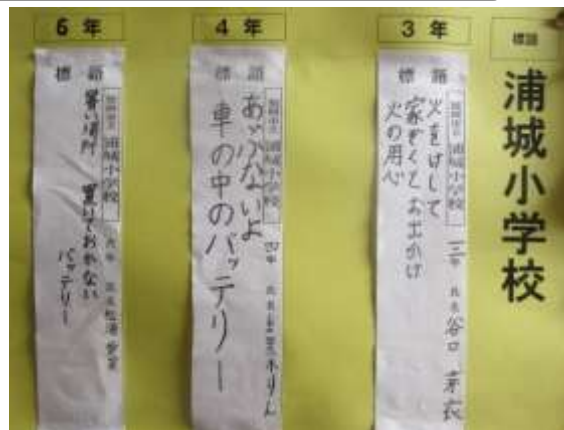 標語
浦城小学校
3年
標語
浦城小学校
火をけして
家ぞくとお出かけ
火の用心
三年 氏名 谷口 芽衣
4年
標語
浦城小学校
あぶないよ
車の中のバッテリー
四年 氏名
6年
標語
浦城小学校
暑い場所 置いておかない
バッテリー
六年 氏名